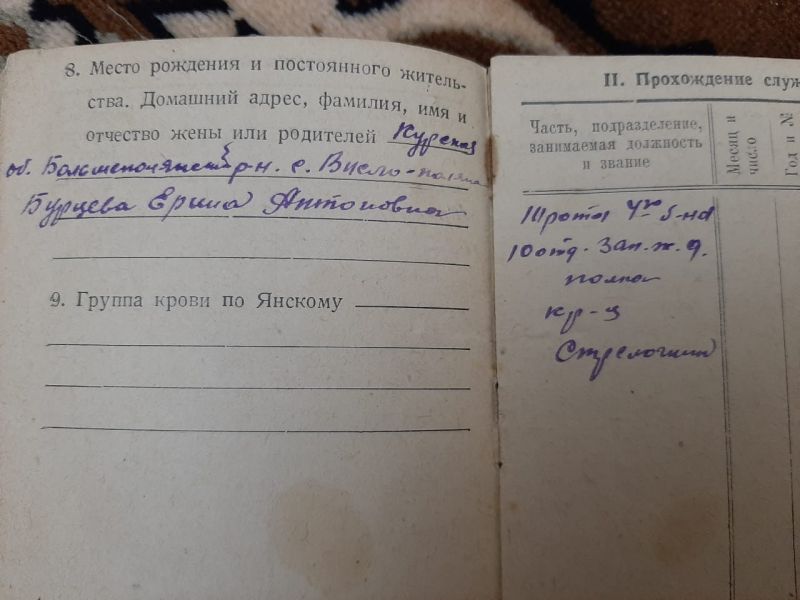 8. Место рождения и постоянного житель-
ства. Домашний адрес, фамилия, имя и
отчество жены или родителей Курская
об. Большеполянский р-н. с. Висло-поляна
Бурцева Ерина Антоновна
9. Группа крови по Янскому
II. Прохождение служ
Часть, подразделение,
занимаемая должность
и звание
Месяц и
число
Год и №
рота 4го б-на
10 отд. зап. ж. д.
полка
кр-ц
Стрелочник